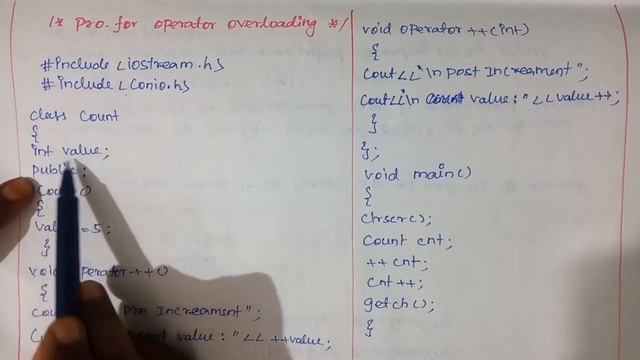 /* Pro. for operator overloading */
#include <iostream.h>
#include <conio.h>
class Count
{
int value;
public:
{
=5;
}
++()
{
Pre Increament";
value: "<< ++value;
void operator ++(int)
{
Cout<<"\n post Increament";
Cout<<"\n value: "<<value++;
}
};
void main()
{
clrscr();
Count cnt;
++ cnt;
cnt++;
getch();
}